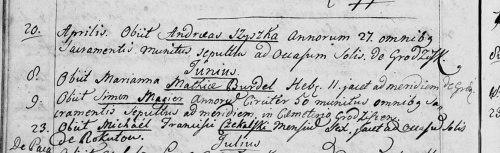 20. Aprilis. Obiit Andreas Szyszka Annorum 27. omnibq
Sacramentis munitus sepultus ad occasum Solis. de Grodzisk.
Junius.
8. Obiit Marianna Mathiae Burdel Heb: 11. jacet ad meridiem de Grodz
9. Obiit Simon Magier Annorū Circiter 50 munitus omnibq Sa
cramentis Sepultus ad meridiem, in Cæmeterio Grodzisen:
23. Obiit Michaël Francisci Bekalski Mensiū Sex, jacet ad occasū Solis
de Pora de Rokutow.
Julius